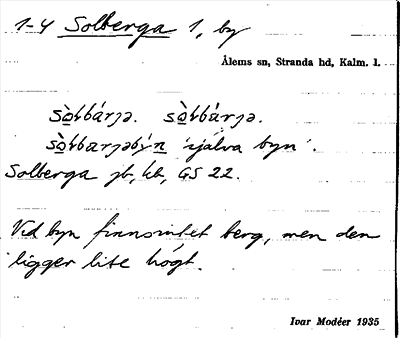 1-4 Solberga 1, by
Ålems sn, Stranda hd, Kalm. l.
'själva byn'.
Solberga jb, kb, GS 22.
Vid byn finns intet berg, men den
ligger lite högt.
Ivar Modéer 1935